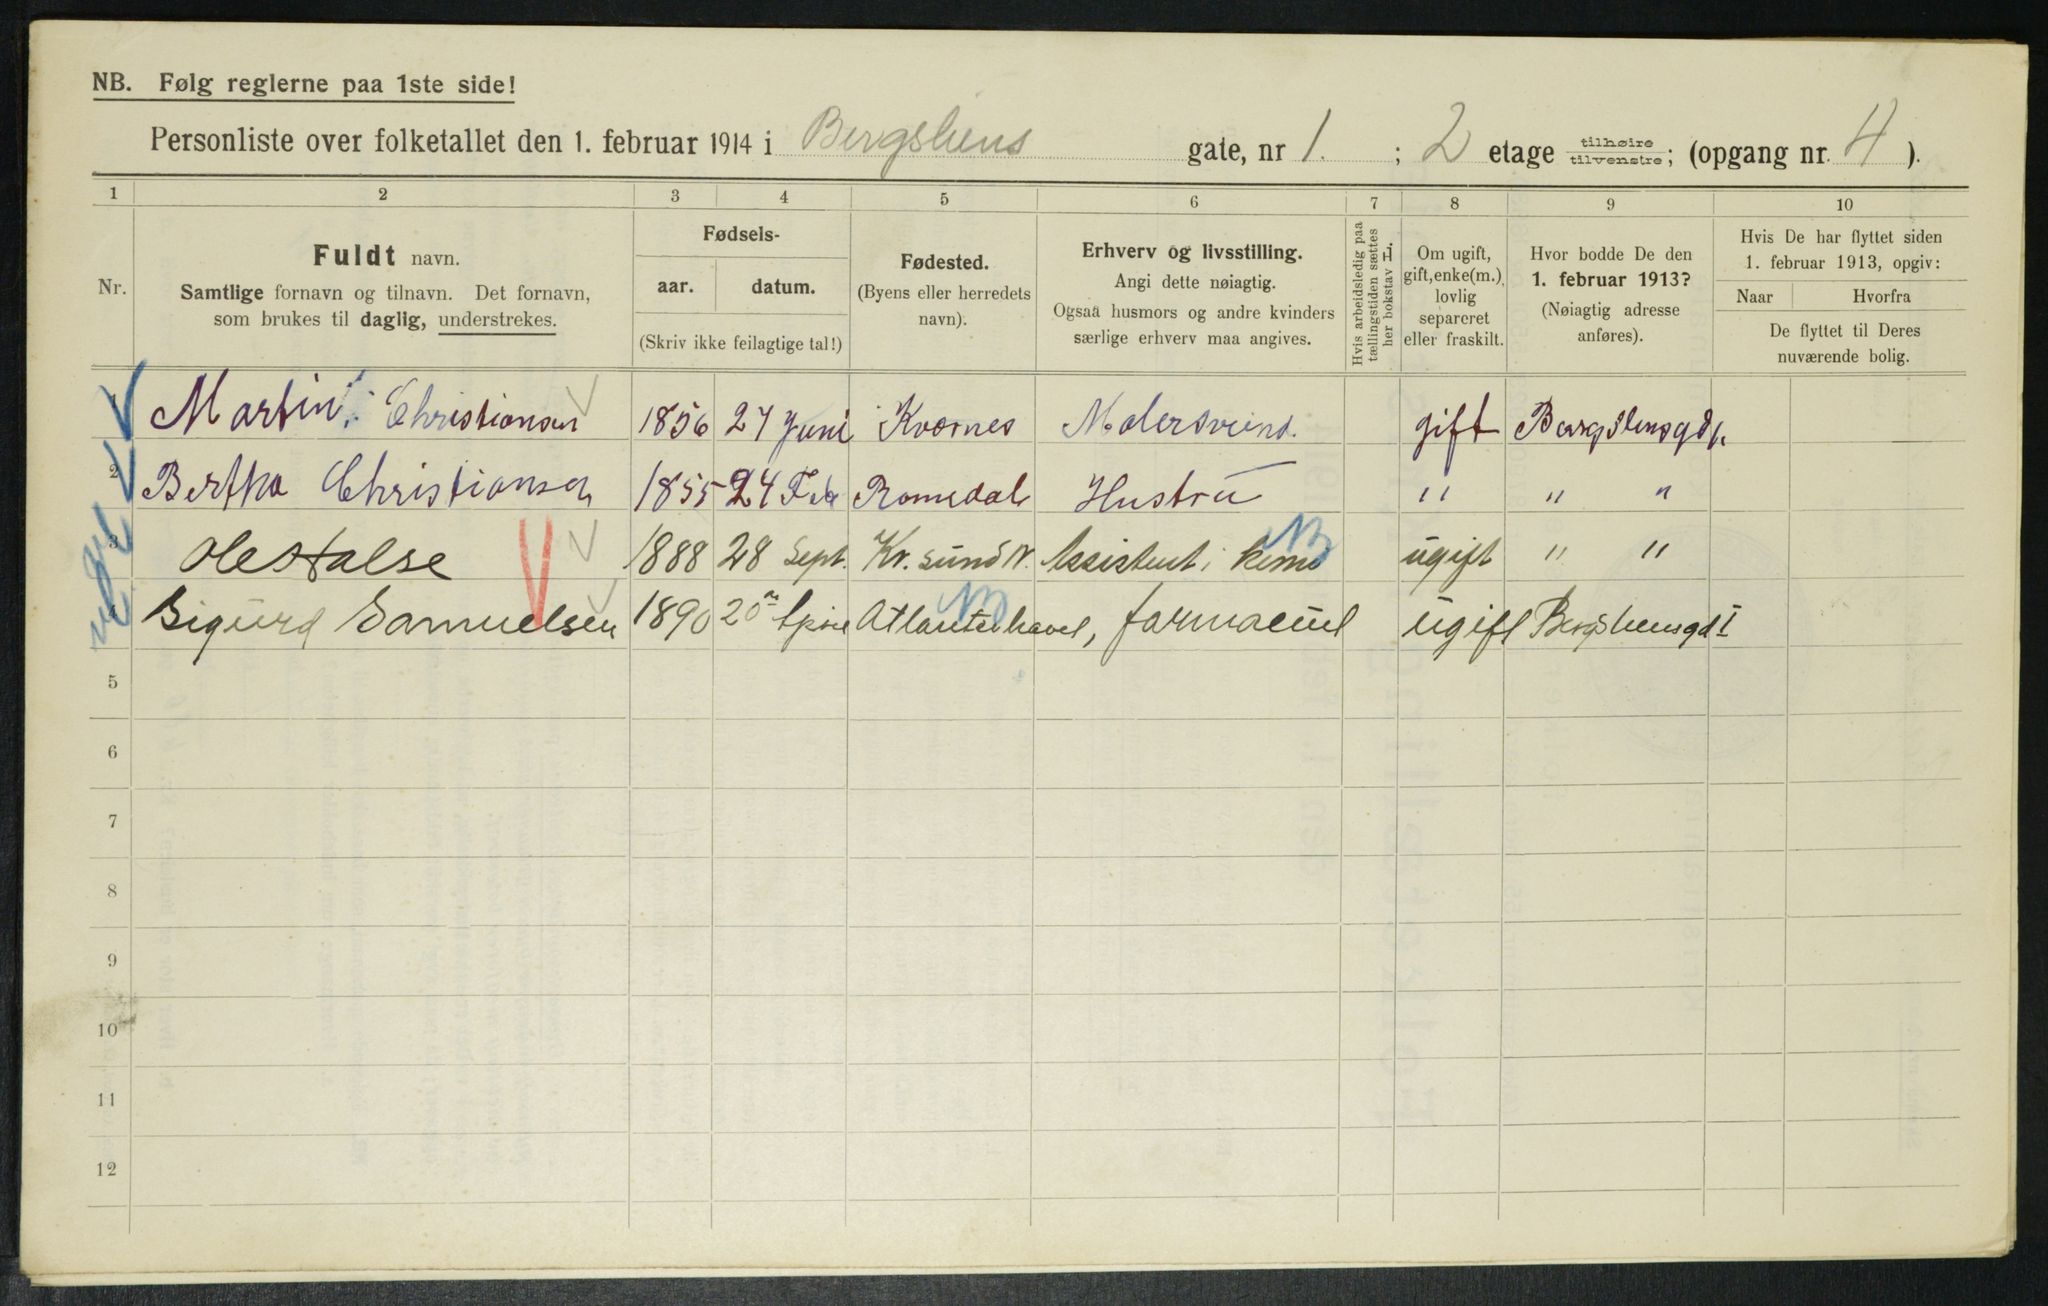 NB. Følg reglerne paa 1ste side!
Personliste over folketallet den 1. februar 1914 i Bergsliens gate, nr 1. ; 2 etage tilhøire tilvenstre; (opgang nr. 4 ).
1 2 3 4 5 6 7 8 9 10
Nr.
Fuldt navn.
Samtlige fornavn og tilnavn. Det fornavn,
som brukes til daglig, understrekes.
Fødsels-
aar. datum.
(Skriv ikke feilagtige tal!)
Fødested.
(Byens eller herredets
navn).
Erhverv og livsstilling.
Angi dette nøiagtig.
Ogsaa husmors og andre kvinders
særlige erhverv maa angives.
Hvis arbeidsledig paa
tællingstiden sættes
her bokstav L.
Om ugift,
gift, enke(m.),
lovlig
separeret
eller fraskilt.
Hvor bodde De den
1. februar 1913?
(Nøiagtig adresse
anføres).
Hvis De har flyttet siden
1. februar 1913, opgiv:
Naar Hvorfra
De flyttet til Deres
nuværende bolig.
1 Martin Christiansen 1856 27 Juni Kværnes Malersvend. gift Bergsliensgd 1.
2 Bertha Christiansen 1855 24 Feb Romedal Hustru " " "
3 Ole Halse 1888 28 Sept. Kr. sund N. Assistent i ugift " "
4 Sigurd Samuelsen 1890 20 Atlanterhavet, farmaceut ugift Bergsliensgd I
5
6
7
8
9
10
11
12